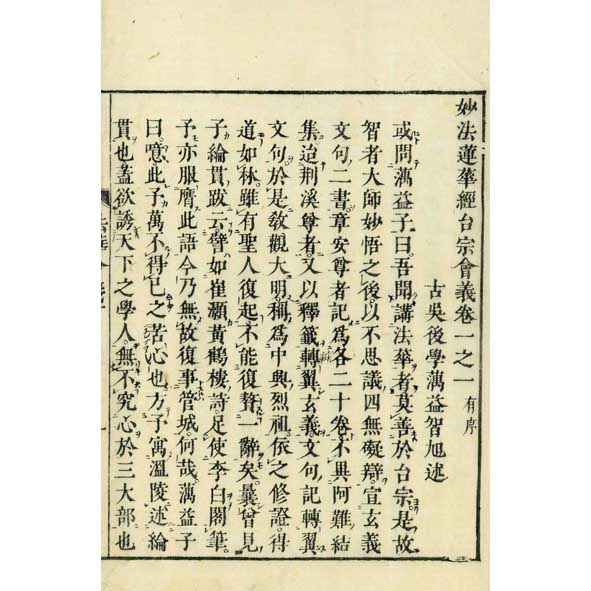 妙法蓮華經台宗會義卷一之一 有序
古吳後學蕅益智旭述
或問蕅益子曰吾聞講法華者莫善於台宗是故
智者大師妙悟之後以不思議四無礙辯宣玄義
文句二書章安尊者記爲各二十卷不異阿難結
集迨荆溪尊者又以釋籤轉翼玄義文句記轉翼
文句於是敎觀大明稱爲中興烈祖依之修證得
道如林雖有聖人復起不能復贅一辭矣曩曾見
子綸貫跋云譬如崔顥黃鶴樓詩足使李白閣筆
予亦服膺此語今乃無故復事管城何哉蕅益子
曰噫此予萬不得已之苦心也方予寓溫陵述綸
貫也蓋欲誘天下之學人無不究心於三大部也